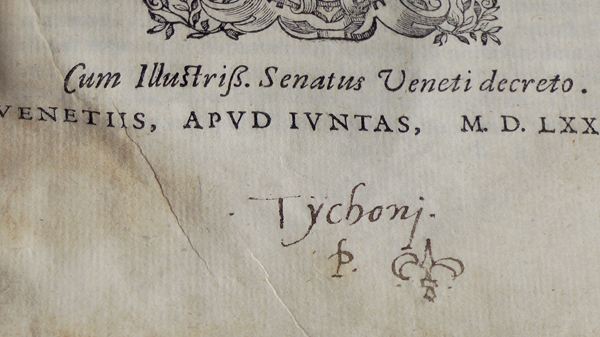 Cum Illustriß. Senatus Veneti decreto.
VENETIIS, APVD IVNTAS, M. D. LXX
Tychonj.
P.